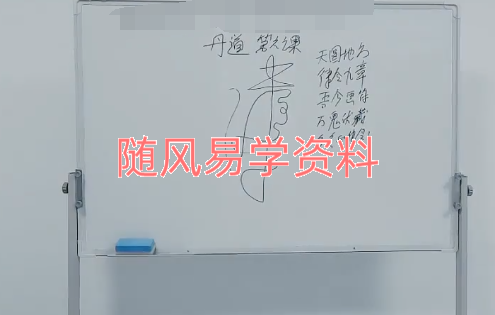 丹道 第六课
天圆地方
律令九章
吾今画符
万鬼伏藏
随风易学资料